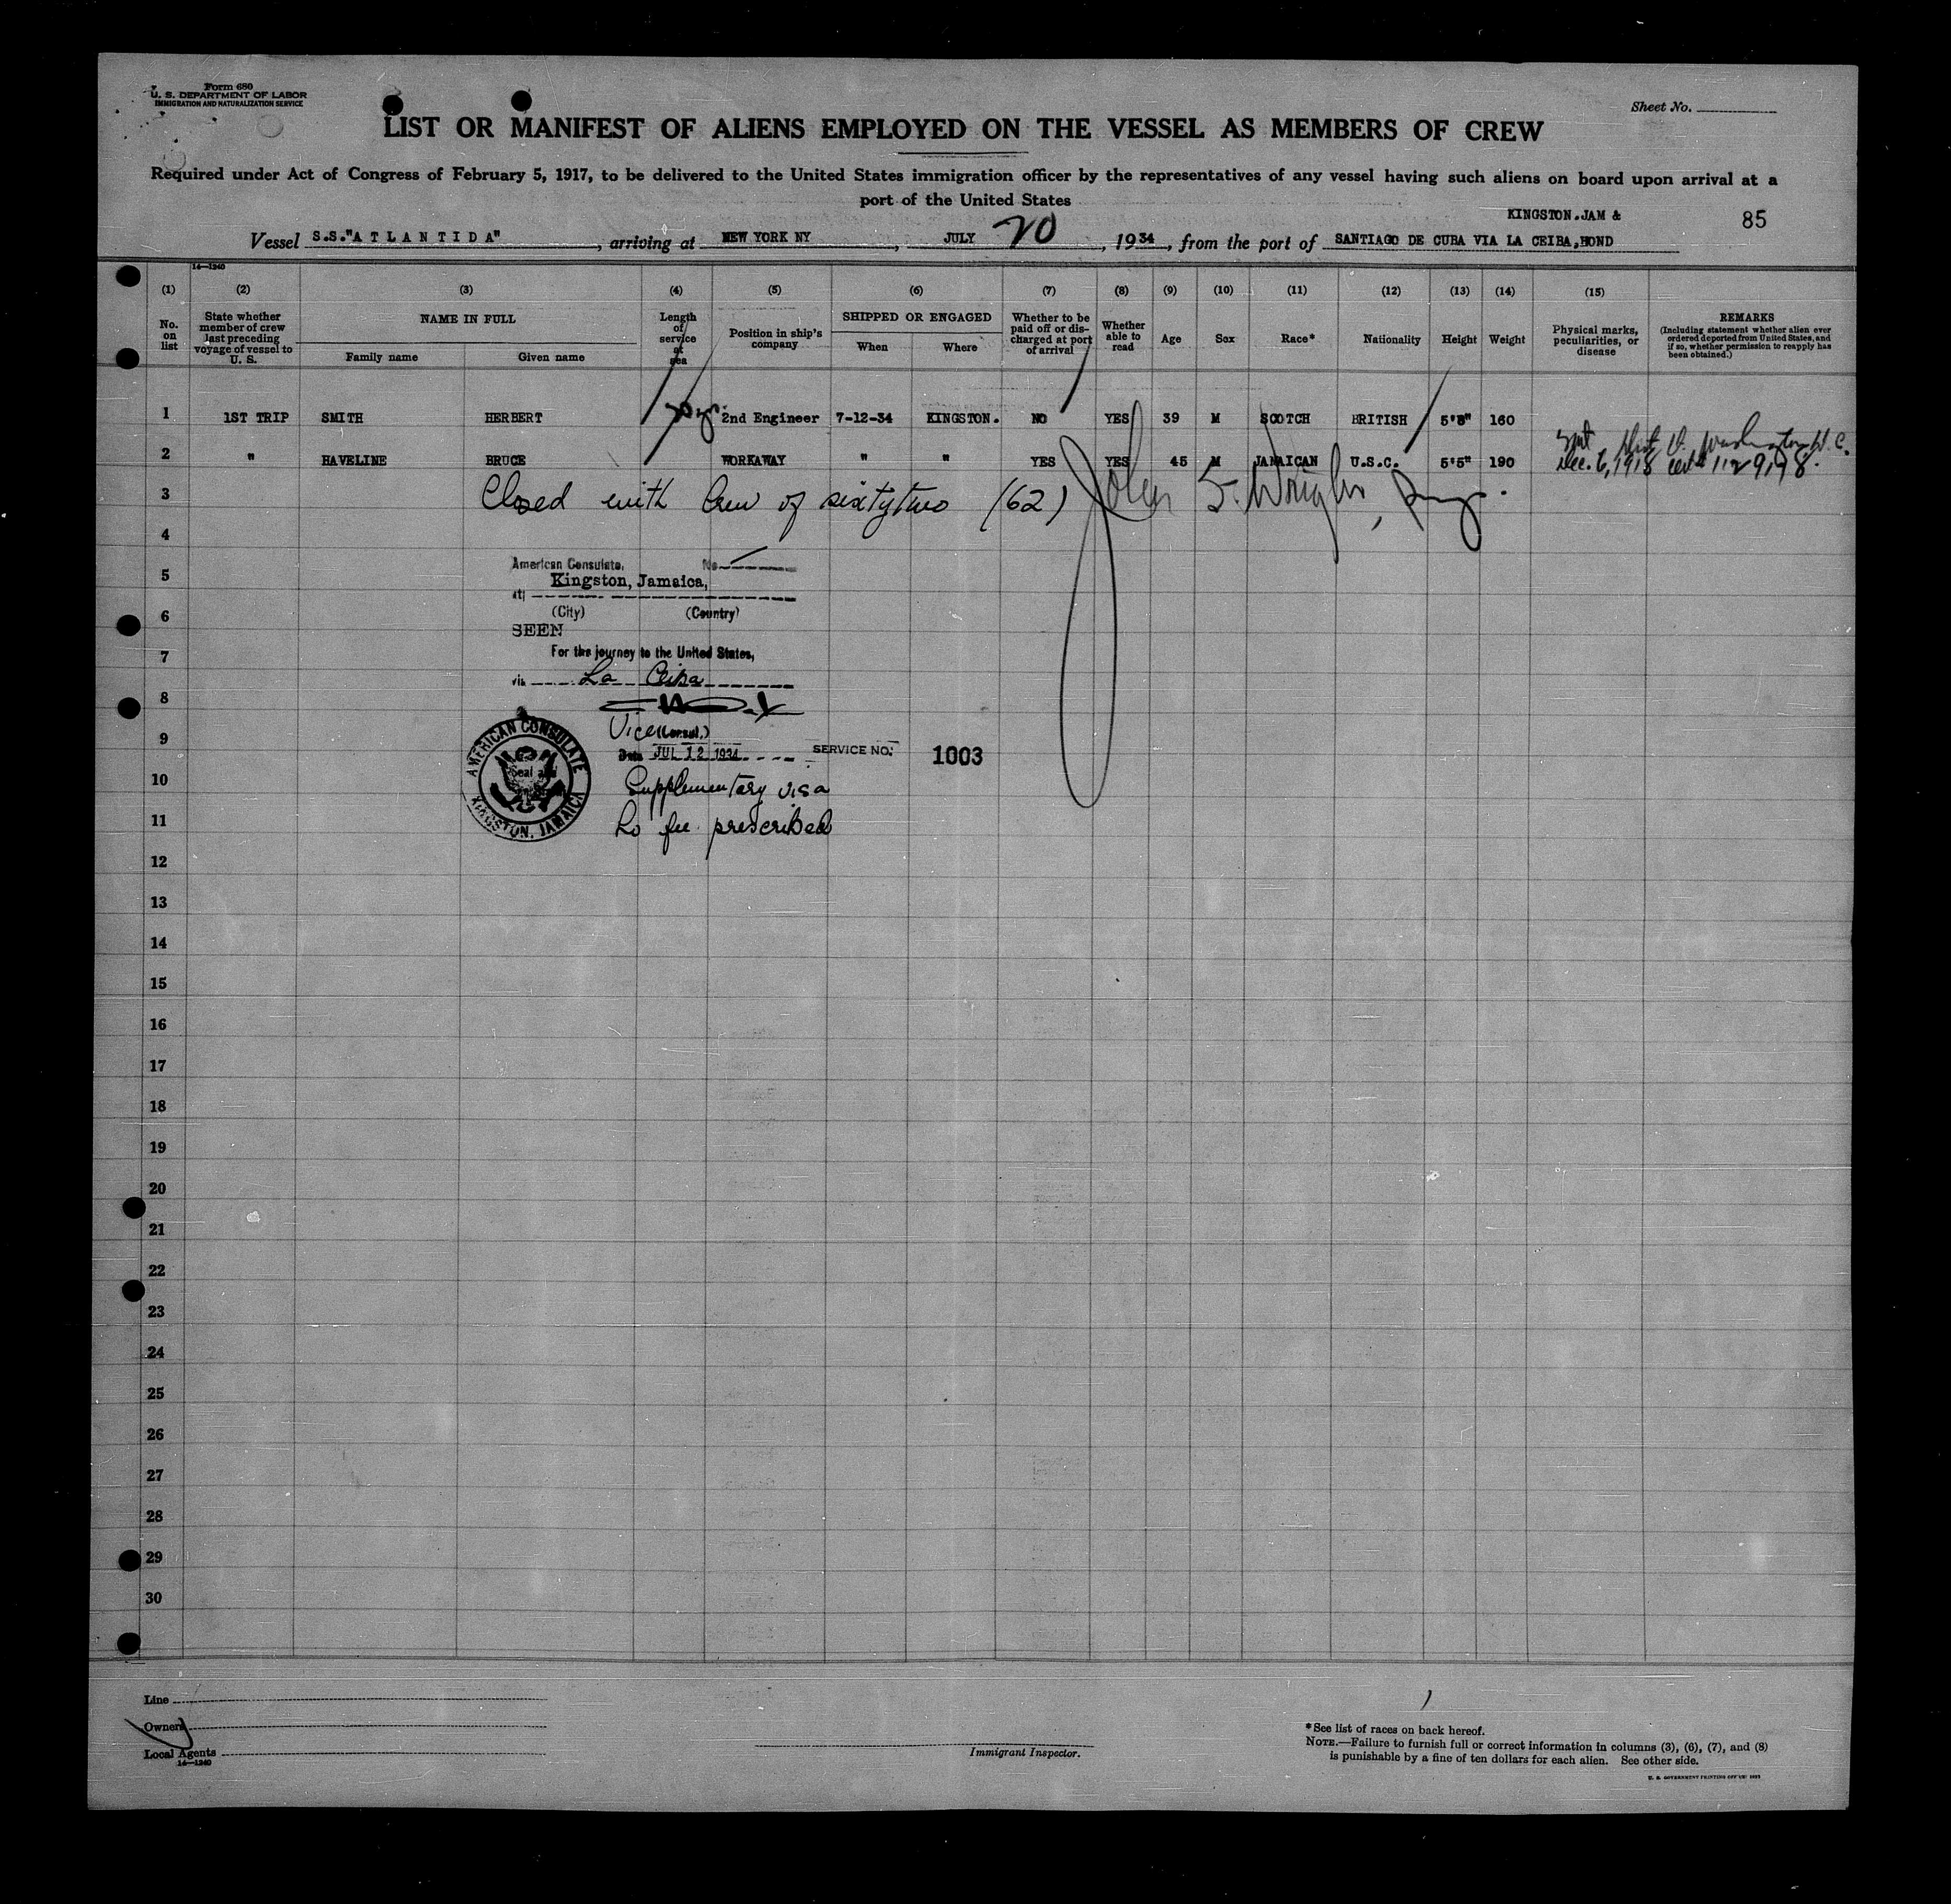 Form 680
U. S. DEPARTMENT OF LABOR
IMMIGRATION AND NATURALIZATION SERVICE
Sheet No.
LIST OR MANIFEST OF ALIENS EMPLOYED ON THE VESSEL AS MEMBERS OF CREW
Required under Act of Congress of February 5, 1917, to be delivered to the United States immigration officer by the representatives of any vessel having such aliens on board upon arrival at a
port of the United States
KINGSTON.JAM &
85
Vessel S.S."ATLANTIDA", arriving at NEW YORK NY, JULY 20, 1934, from the port of SANTIAGO DE CUBA VIA LA CEIBA,HOND
14—1240
(1) (2) (3) (4) (5) (6) (7) (8) (9) (10) (11) (12) (13) (14) (15)
No. on list
State whether member of crew last preceding voyage of vessel to U. S.
NAME IN FULL
Family name
Given name
Length of service at sea
Position in ship's company
SHIPPED OR ENGAGED
When
Where
Whether to be paid off or discharged at port of arrival
Whether able to read
Age
Sex
Race*
Nationality
Height
Weight
Physical marks, peculiarities, or disease
REMARKS
(Including statement whether alien ever ordered deported from United States, and if so, whether permission to reapply has been obtained.)
1 1ST TRIP SMITH HERBERT 2nd Engineer 7-12-34 KINGSTON. NO YES 39 M SCOTCH BRITISH 5'8" 160
2 " HAVELINE BRUCE WORKAWAY " " YES YES 45 M JAMAICAN U.S.C. 5'5" 190
Washington D.C.
Dec. 6, 1918 cert # 1129198.
3 Closed with Crew of sixtytwo (62) John
4
American Consulate, No
5
Kingston, Jamaica,
at
6
(City) (Country)
SEEN
7
For the journey to the United States,
via La Ceiba
8
Vice (Consul.)
9
Date JUL 12 1934 SERVICE NO. 1003
AMERICAN CONSULATE
KINGSTON, JAMAICA
10
Supplementary visa
11
No fee prescribed
12
13
14
15
16
17
18
19
20
21
22
23
24
25
26
27
28
29
30
Line
Owners
Local Agents
14—1240
Immigrant Inspector.
*See list of races on back hereof.
NOTE.—Failure to furnish full or correct information in columns (3), (6), (7), and (8)
is punishable by a fine of ten dollars for each alien. See other side.